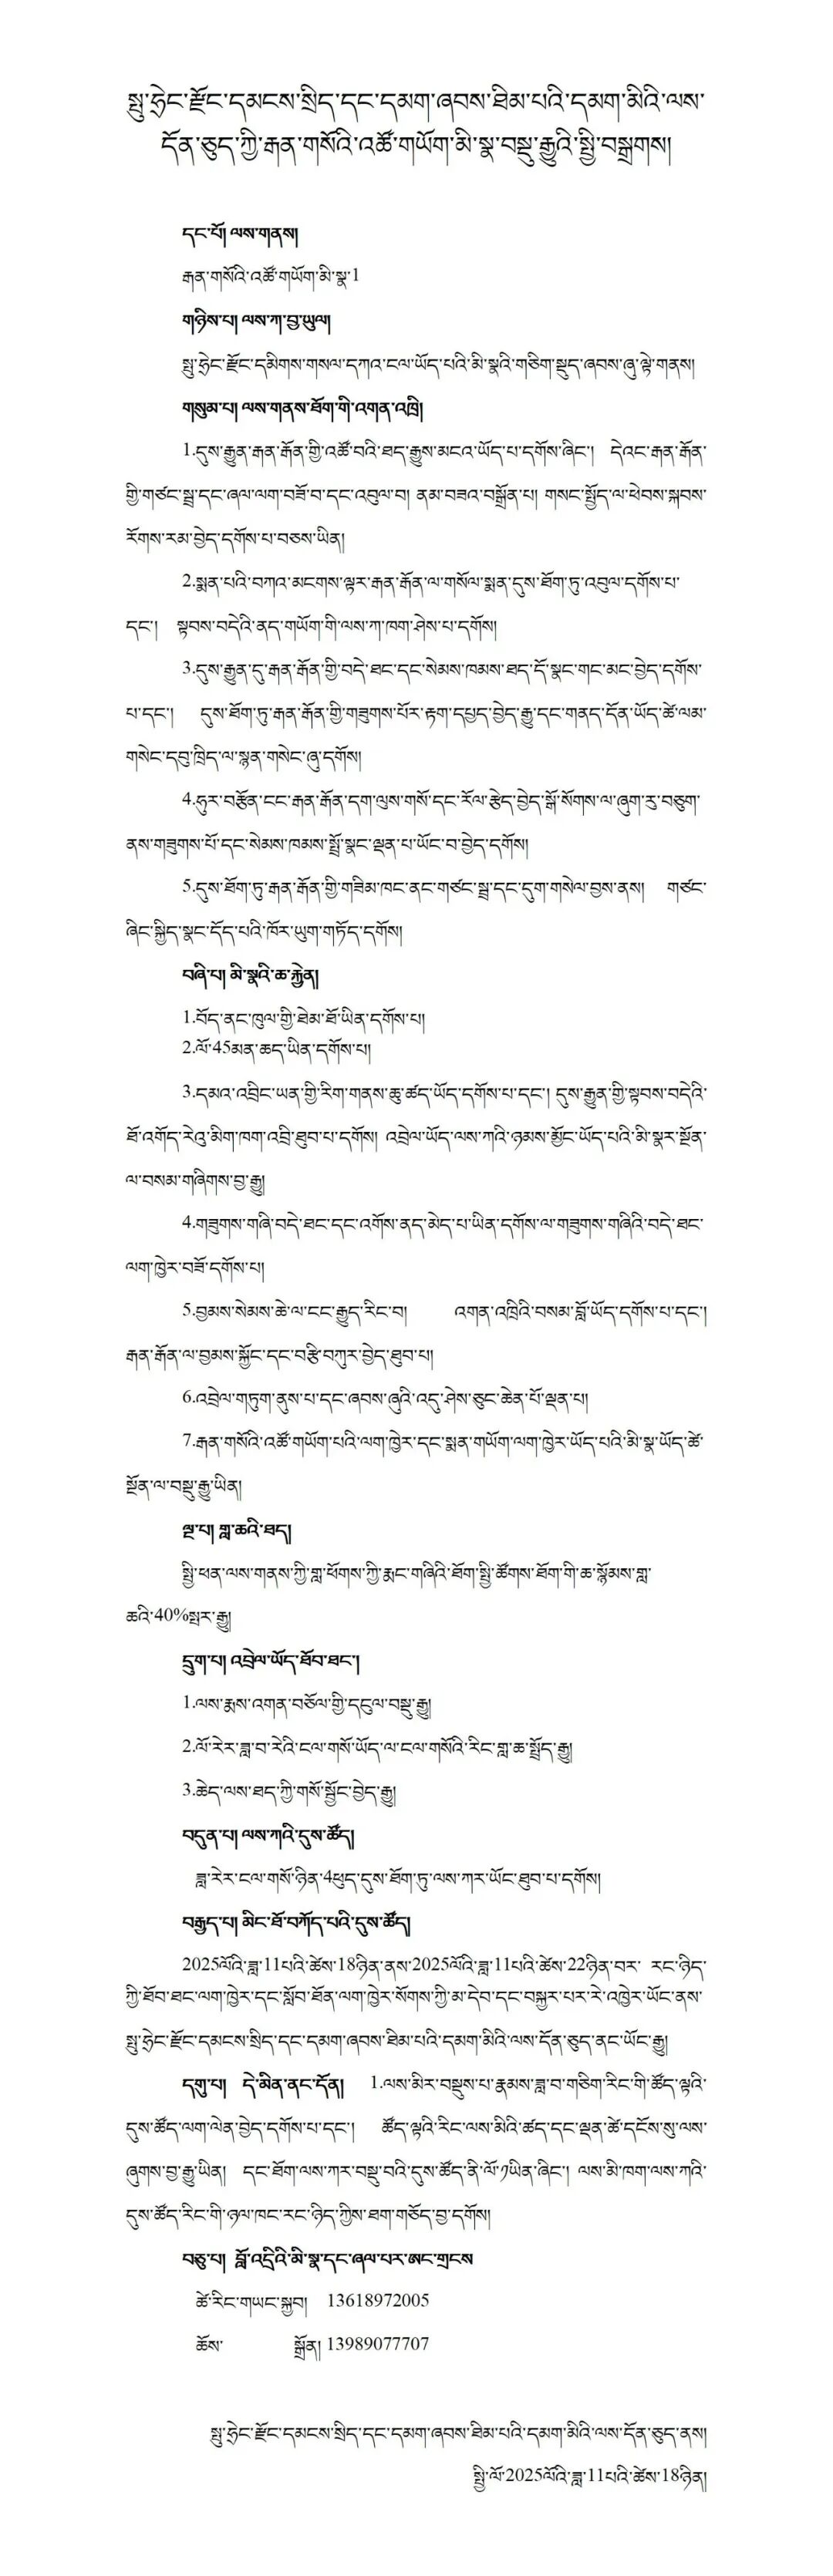 སྤུ་ཧྲེང་རྫོང་དམངས་སྲིད་དང་དམག་ཞབས་ཐིམ་པའི་དམག་མིའི་ལས་
དོན་ཅུད་ཀྱི་རྒན་གསོའི་འཚོ་གཡོག་མི་སྣ་བསྡུ་རྒྱུའི་སྤྱི་བསྒྲགས།
དང་པོ། ལས་གནས།
རྒན་གསོའི་འཚོ་གཡོག་མི་སྣ་1
གཉིས་པ། ལས་ཀ་བྱ་ཡུལ།
སྤུ་ཧྲེང་རྫོང་དམིགས་གསལ་དཀའ་ངལ་ཡོད་པའི་མི་སྣའི་གཅིག་སྡུད་ཞབས་ཞུ་ལྟེ་གནས།
གསུམ་པ། ལས་གནས་ཐོག་གི་འགན་འཁྲི།
1.དུས་རྒྱུན་རྒན་རྒོན་གྱི་འཚོ་བའི་ཐད་རྒྱུས་མངའ་ཡོད་པ་དགོས་ཞིང་། དེའང་རྒན་རྒོན་
གྱི་གཙང་སྦྲ་དང་ཞལ་ལག་བཟོ་བ་དང་འབུལ་བ། ནམ་བཟའ་བསྒྲོན་པ། གསང་སྤྱོད་ལ་ཕེབས་སྐབས་
རོགས་རམ་བྱེད་དགོས་པ་བཅས་ཡིན།
2.སྨན་པའི་བཀའ་མངགས་ལྟར་རྒན་རྒོན་ལ་གསོལ་སྨན་དུས་ཐོག་ཏུ་འབུལ་དགོས་པ་
དང་། སྟབས་བདེའི་ནད་གཡོག་གི་ལས་ཀ་ཁག་ཤེས་པ་དགོས།
3.དུས་རྒྱུན་དུ་རྒན་རྒོན་གྱི་བདེ་ཐང་དང་སེམས་ཁམས་ཐད་དོ་སྣང་གང་མང་བྱེད་དགོས་
པ་དང་། དུས་ཐོག་ཏུ་རྒན་རྒོན་གྱི་གཟུགས་པོར་རྟག་དཔྱད་བྱེད་རྒྱུ་དང་གནད་དོན་ཡོད་ཚེ་ལམ་
གསེང་དབུ་ཁྲིད་ལ་སྙན་གསེང་ཞུ་དགོས།
4.ཧུར་བརྩོན་ངང་རྒན་རྒོན་དག་ལུས་གསོ་དང་རོལ་རྩེད་བྱེད་སྒོ་སོགས་ལ་ཞུག་རུ་བཅུག་
ནས་གཟུགས་པོ་དང་སེམས་ཁམས་སྤྲོ་སྣང་ལྡན་པ་ཡོང་བ་བྱེད་དགོས།
5.དུས་ཐོག་ཏུ་རྒན་རྒོན་གྱི་གཟིམ་ཁང་ནང་གཙང་སྦྲ་དང་དུག་གསེལ་བྱས་ནས། གཙང་
ཞིང་སྐྱིད་སྣང་དོད་པའི་ཁོར་ཡུག་གཏོད་དགོས།
བཞི་པ། མི་སྣའི་ཆ་རྐྱེན།
1.བོད་ནང་ཁུལ་གྱི་ཐེམ་ཐོ་ཡིན་དགོས་པ།
2.ལོ་45མན་ཆད་ཡིན་དགོས་པ།
3.དམའ་འབྲིང་ཡན་གྱི་རིག་གནས་ཆུ་ཚད་ཡོད་དགོས་པ་དང་། དུས་རྒྱུན་གྱི་སྟབས་བདེའི་
ཐོ་འགོད་རེའུ་མིག་ཁག་འབྲི་ཐུབ་པ་དགོས། འབྲེལ་ཡོད་ལས་ཀའི་ཉམས་མྱོང་ཡོད་པའི་མི་སྣར་སྔོན་
ལ་བསམ་གཞིགས་བྱ་རྒྱུ།
4.གཟུགས་གཞི་བདེ་ཐང་དང་འགོས་ནད་མེད་པ་ཡིན་དགོས་ལ་གཟུགས་གཞིའི་བདེ་ཐང་
ལག་ཁྱེར་བཟོ་དགོས་པ།
5.བྱམས་སེམས་ཆེ་ལ་ངང་རྒྱུད་རིང་བ། འགན་འཁྲིའི་བསམ་བློ་ཡོད་དགོས་པ་དང་།
རྒན་རྒོན་ལ་བྱམས་སྐྱོང་དང་བརྩི་བཀུར་བྱེད་ཐུབ་པ།
6.འབྲེལ་གཏུག་ནུས་པ་དང་ཞབས་ཞུའི་འདུ་ཤེས་ཅུང་ཆེན་པོ་ལྡན་པ།
7.རྒན་གསོའི་འཚོ་གཡོག་པའི་ལག་ཁྱེར་དང་སྨན་གཡོག་ལག་ཁྱེར་ཡོད་པའི་མི་སྣ་ཡོད་ཚེ་
སྔོན་ལ་བསྡུ་རྒྱུ་ཡིན།
ལྔ་པ། གླ་ཆའི་ཐད།
སྤྱི་ཕན་ལས་གནས་ཀྱི་གླ་ཕོགས་ཀྱི་རྨང་གཞིའི་ཐོག་སྤྱི་ཚོགས་ཐོག་གི་ཆ་སྙོམས་གླ་
ཆའི་40%སྤར་རྒྱུ།
དྲུག་པ། འབྲེལ་ཡོད་ཐོབ་ཐང་།
1.ལས་རྨས་འགན་བཅོལ་གྱི་དངུལ་བསྡུ་རྒྱུ།
2.ལོ་རེར་ཟླ་བ་རེའི་ངལ་གསོ་ཡོད་ལ་ངལ་གསོའི་རིང་གླ་ཆ་སྤྲོད་རྒྱུ།
3.ཆེད་ལས་ཐད་ཀྱི་གསོ་སྦྱོང་བྱེད་རྒྱུ།
བདུན་པ། ལས་ཀའི་དུས་ཚོད།
ཟླ་རེར་ངལ་གསོ་ཉིན་4ཕུད་དུས་ཐོག་ཏུ་ལས་ཀར་ཡོང་ཐུབ་པ་དགོས།
བརྒྱད་པ། མིང་ཐོ་བཀོད་པའི་དུས་ཚོད།
2025ལོའི་ཟླ་11པའི་ཚེས་18ཉིན་ནས་2025ལོའི་ཟླ་11པའི་ཚེས་22ཉིན་བར་ རང་ཉིད་
ཀྱི་ཐོབ་ཐང་ལག་ཁྱེར་དང་སློབ་ཐོན་ལག་ཁྱེར་སོགས་ཀྱི་མ་དེབ་དང་བསྐྱར་པར་རེ་འཁྱེར་ཡོང་ནས་
སྤུ་ཧྲེང་རྫོང་དམངས་སྲིད་དང་དམག་ཞབས་ཐིམ་པའི་དམག་མིའི་ལས་དོན་ཅུད་ནང་ཡོང་རྒྱུ།
དགུ་པ། དེ་མིན་ནང་དོན། 1.ལས་མིར་བསྡུས་པ་རྣམས་ཟླ་བ་གཅིག་རིང་གི་ཚོད་ལྟའི་
དུས་ཚོད་ལག་ལེན་བྱེད་དགོས་པ་དང་། ཚོད་ལྟའི་རིང་ལས་མིའི་ཚད་དང་ལྡན་ཚེ་དངོས་སུ་ལས་
ཞུགས་བྱ་རྒྱུ་ཡིན། དང་ཐོག་ལས་ཀར་བསྡུ་བའི་དུས་ཚོད་ནི་ལོ་༡ཡིན་ཞིང་། ལས་མི་ཁག་ལས་ཀའི་
དུས་ཚོད་རིང་གི་ཉལ་ཁང་རང་ཉིད་ཀྱིས་ཐག་གཅོད་བྱ་དགོས།
བཅུ་པ། བློ་འདྲིའི་མི་སྣ་དང་ཞལ་པར་ཨང་གྲངས
ཚེ་རིང་གཡང་སྐྱབ། 13618972005
ཆོས་ སྒྲོན། 13989077707
སྤུ་ཧྲེང་རྫོང་དམངས་སྲིད་དང་དམག་ཞབས་ཐིམ་པའི་དམག་མིའི་ལས་དོན་ཅུད་ནས།
སྤྱི་ལོ་2025ལོའི་ཟླ་11པའི་ཚེས་18ཉིན།